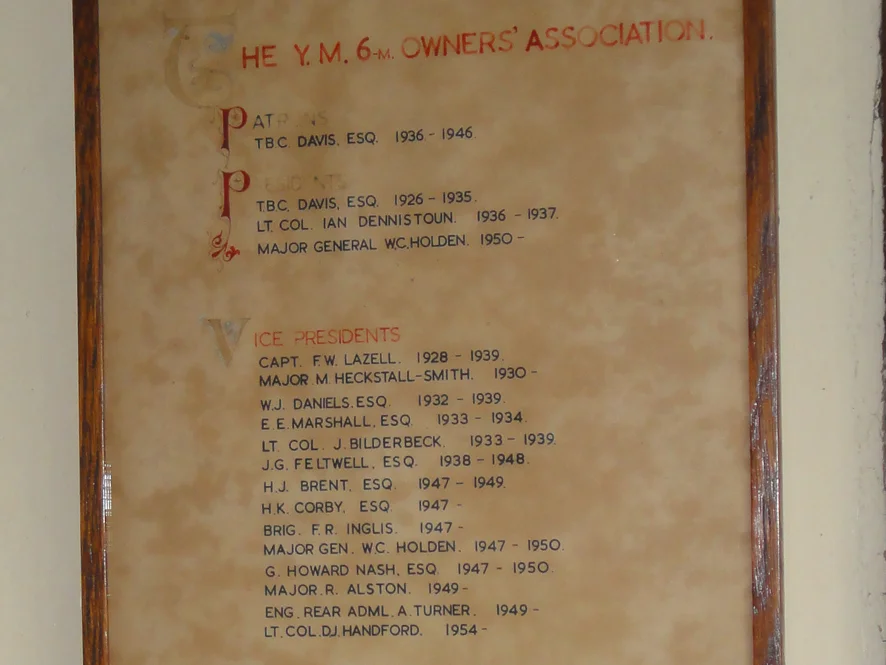 THE Y. M. 6-M. OWNERS' ASSOCIATION.
PATRONS
T.B.C. DAVIS, ESQ. 1936 - 1946
PRESIDENTS
T.B.C. DAVIS, ESQ. 1926 - 1935.
LT. COL. IAN DENNISTOUN. 1936 - 1937.
MAJOR GENERAL W.C. HOLDEN. 1950 -
VICE PRESIDENTS
CAPT. F.W. LAZELL. 1928 - 1939.
MAJOR. M. HECKSTALL-SMITH. 1930 -
W.J. DANIELS. ESQ. 1932 - 1939.
E.E. MARSHALL, ESQ. 1933 - 1934.
LT. COL. J. BILDERBECK. 1933 - 1939.
J.G. FELTWELL, ESQ. 1938 - 1948.
H.J. BRENT, ESQ. 1947 - 1949.
H.K. CORBY, ESQ. 1947 -
BRIG. F.R. INGLIS. 1947 -
MAJOR GEN. W.C. HOLDEN. 1947 - 1950.
G. HOWARD NASH, ESQ. 1947 - 1950.
MAJOR. R. ALSTON. 1949 -
ENG. REAR ADML. A. TURNER. 1949 -
LT. COL. D.J. HANDFORD. 1954 -